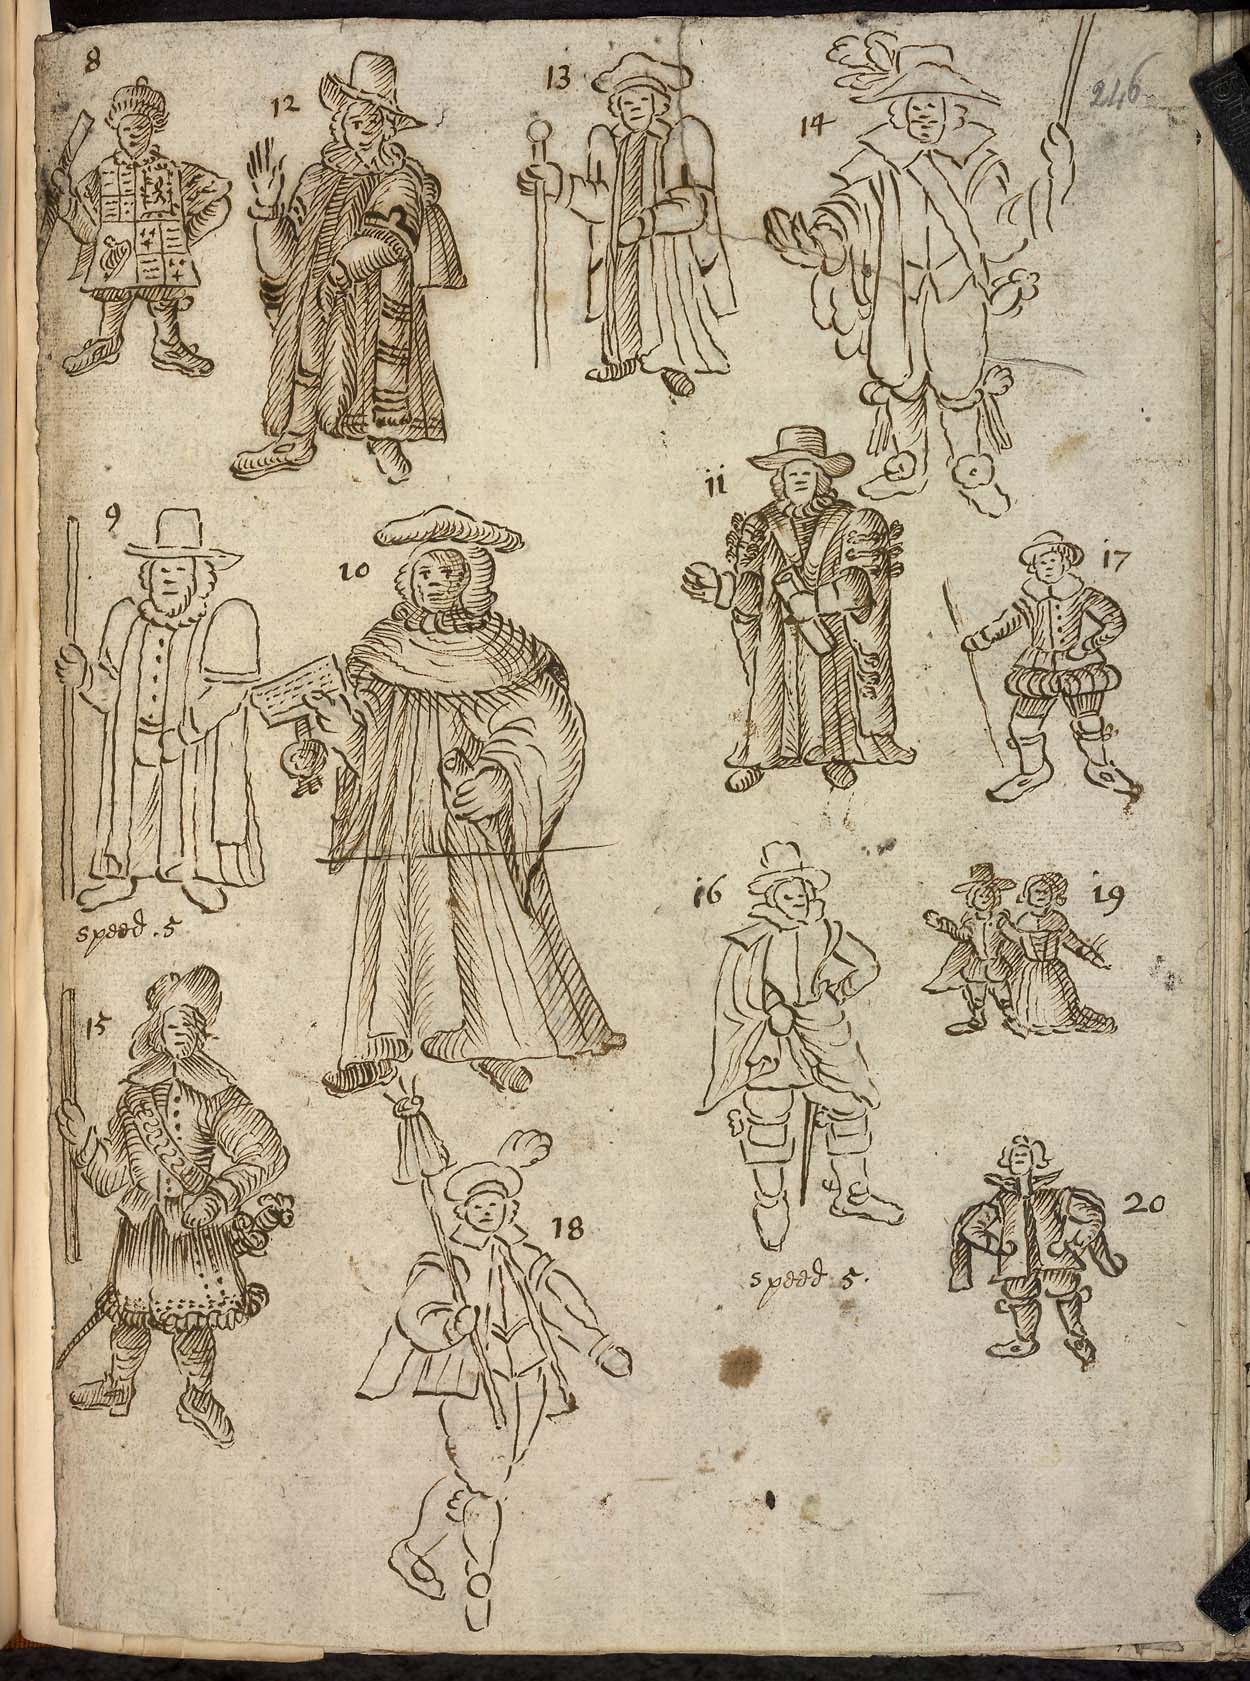 8
12
13
14
246
9
10
11
17
speed . 5
16
19
15
18
20
speed 5.